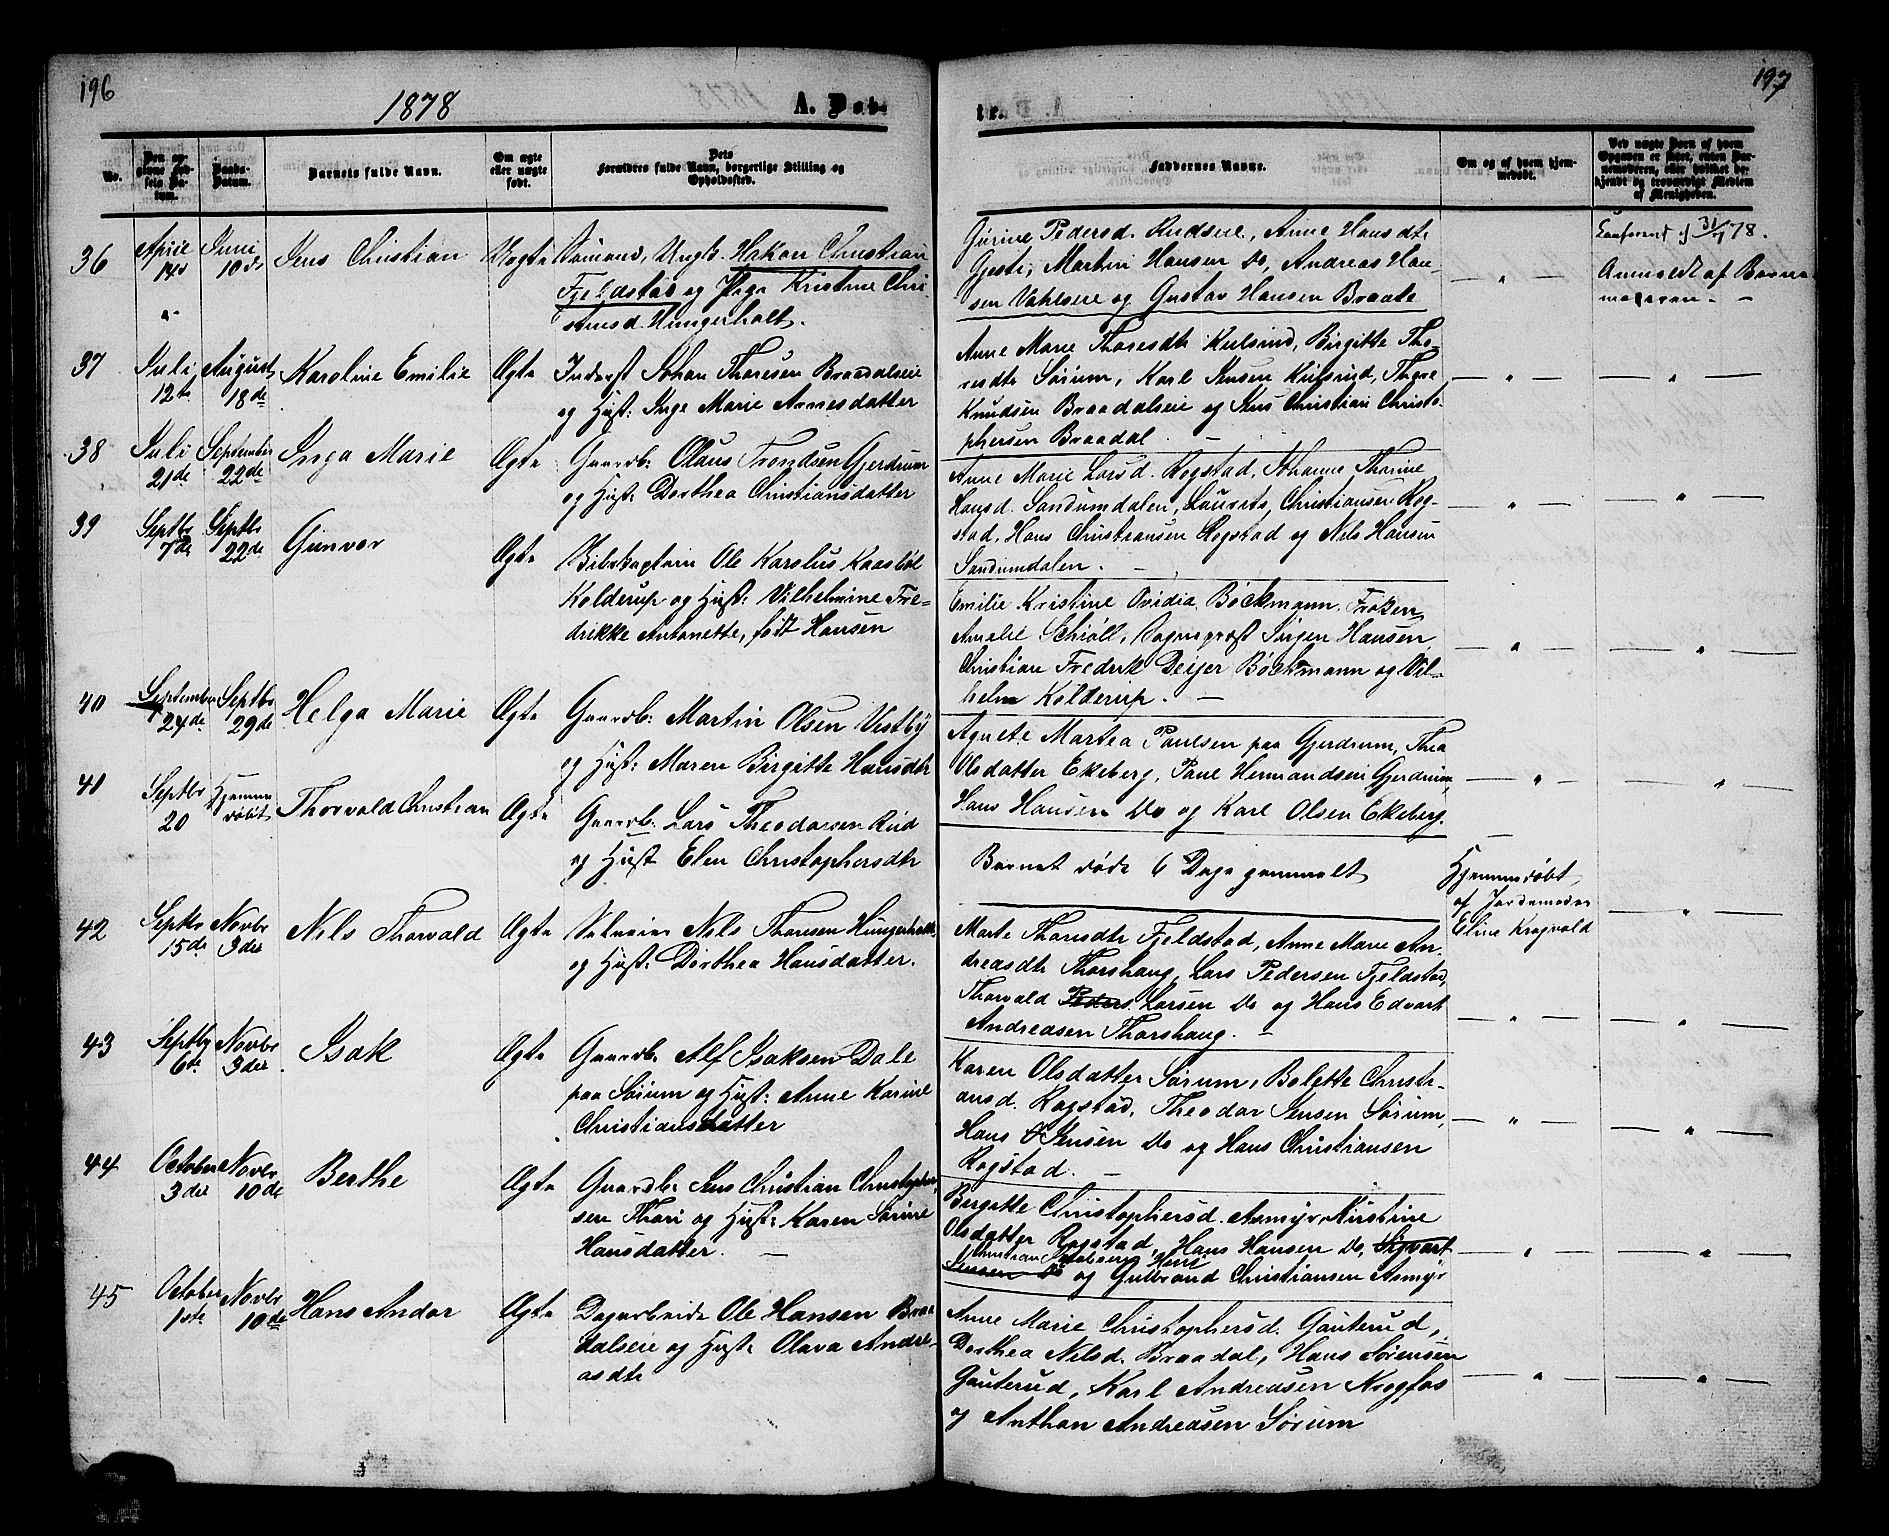 196
1878
A. Døb-
No.
Den op-
givne Fød-
sels Da-
tum.
Daabs-
Datum.
Barnets fulde Navn.
Om ægte
eller uægte
født.
Dets
Forældres fulde Navn, borgerlige Stilling og
Opholdssted.
36
April
14de
Juni
10de
Jens Christian
Uægte
Sømand, Ungk. Hakon Christian
Fjeldstad og Pige Kristine Chri-
stiansd. Hungerholt.
37
Juli
12te
August
18de
Karoline Emilie
Ægte
Inderst Johan Thoresen Braadalseie
og Hust: Inge Marie Arnesdatter
38
Juli
21de
September
22de
Inga Marie
Ægte
Gaardb: Olaus Trondsen Gjerdrum
og Hust: Dorthea Christiansdatter
39
Septbr
7de
Septbr
22de
Gunvor
Ægte
Skibskaptein Ole Karolus Kaasbøl
Kolderup og Hust: Vilhelmine Fre-
drikke Antonette, født Hansen
40
September
24de
Septbr
29de
Helga Marie
Ægte
Gaardb: Martin Olsen Vestby
og Hust: Maren Birgitte Hansdtr
41
Septbr
20
Hjemme
døbt
Thorvald Christian
Ægte
Gaardb. Lars Theodorsen Rud
og Hust Elen Christophersdtr
42
Septbr
15de
Novbr
3die
Nils Thorvald
Ægte
Nils Thorsen Hungerholt
og Hust: Dorthea Hansdatter.
43
Septbr
6te
Novbr
3die
Isak
Ægte
Gaardb. Alf Isaksen Dale
paa Sørum og Hust: Anne Karine
Christiansdatter
44
October
3die
Novbr
10de
Berthe
Ægte
Gaardb. Jens Christian Christopher-
sen Thori og Hust: Karen Sørine
Hansdatter. —
45
October
1ste
Novbr
10de
Hans Andor
Ægte
Dagarbeide Ole Hansen Braa-
dalseie og Hust: Olava Andre-
asdtr
197
te.
Faddernes Navne.
Om og af hvem hjem-
medøbt.
Ved uægte Børn af hvem
Opgaven er sket, enten Bar-
nemoderen, eller hvilket be-
kjendt og troværdigt Medlem
af Menigheden.
Gurine Pedersd. Rudseie, Anne Hansdtr
Gjesti, Martin Hansen Do, Andreas Han-
sen Vahlseie og Gustav Hansen Braate
— " —
Confereret 31/7 78.
Anmeldt af Barne-
moderen. —
Anne Marie Thoresdtr Kulsrud, Birgitte Tho-
resdtr Sørum, Karl Jensen Kulsrud, Thore
Knudsen Braadalseie og Jens Christian Christo-
phersen Braadal. —
— " —
— " —
Anne Marie Larsd. Rogstad, Johanne Thorine
Hansd. Sandumdalen, Laurits Christiansen Rog-
stad, Hans Christiansen Rogstad og Nils Hansen
Sandumdalen. —
— " —
— " —
Emilie Kristine Ovidia Bøckmann, Frøken
Amalie Schiøll, Sogneprest Jørgen Hansen,
Christian Fredrik Deijer Bøckmann og Vil-
helm Kolderup. —
— " —
— " —
Agnete Martea Paulsen paa Gjerdrum, Thea
Olsdatter Ekeberg, Paul Hermandsen Gjerdrum,
Hans Hansen Do og Karl Olsen Ekeberg.
— " —
— " —
Barnet døde 6 Dage gammelt
Hjemmedøbt
af Jordemoder
Eline Krogvold
— " —
Marte Thorsdtr Fjeldstad, Anne Marie An-
dreasdtr Thorshaug, Lars Pedersen Fjeldstad,
Thorvald Peders. Larsen Do og Hans Edvart
Andreasen Thorshaug. —
— " —
— " —
Karen Olsdatter Sørum, Bolette Christi-
ansd. Rogstad, Theodor Jensen Sørum,
Hans Jensen Do og Hans Christiansen
Rogstad. —
— " —
— " —
Bergitte Christophersd. Asmyr, Kirstine
Olsdatter Rogstad, Hans Hansen Do, Sigvart
Christian
Jensen Do og Gulbrand Christiansen Asmyr
— " —
— " —
Anne Marie Christophersd. Gauterud,
Dorthea Nilsd. Braadal, Hans Sørensen
Gauterud, Karl Andreasen Krogfos
og Anthon Andreasen Sørum
— " —
— " —